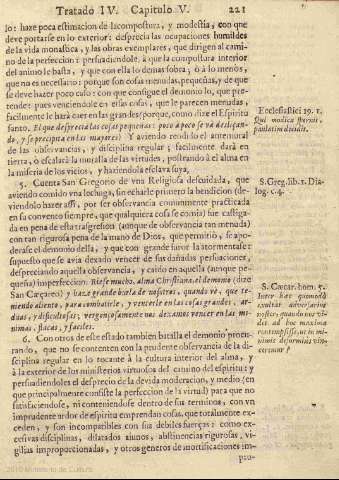 Tratado IV. Capitulo V. 221
lo: haze poca estimacion de la compostura, y modestia, con que
deve portarse en lo exterior: desprecia las ocupaciones humildes
de la vida monastica, y las obras exemplares, que dirigen al cami-
no de la perfeccion: persuadiendole, à que la compostura interior
del animo le basta, y que con ella lo demas sobra; ò à lo menos,
que no es necessario: porque son cosas menudas, pequeñas, y de que
se deve hazer poco caso: con que consigue el demonio lo, que pre-
tende: pues venciendole en estas cosas, que le parecen menudas,
facilmente le harà caer en las grandes: porque, como dize el Espiritu
Santo, El que desprecia las cosas pequeñas: poco à poco se và deslizan-
do, y se precipita en las mayores: Y aviendo rendido el antemural
de las observancias, y disciplina regular; facilmente darà en
tierra, ò escalarà la muralla de las virtudes, postrando à el alma en
la miseria de los vicios, y haziendola esclava suya.
5. Cuenta San Gregorio de una Religiosa descuidada, que
aviendo comido una lechuga, sin echarle primero la bendicion (de-
viendolo hazer assi, por ser observancia comunmente practicada
en su convento siempre, que qualquiera cosa se comia) fue castiga-
da en pena de esta trasgression, (aunque de observancia tan menuda)
con tan rigurosa pena de la mano de Dios, que permitiò, se apo-
derasse el demonio della, y que con grande furor la atormentase:
supuesto que se avia dexado vencer de sus dañadas persuaciones,
despreciando aquella observancia, y caido en aquella (aunque pe-
queña) imperfeccion. Riese mucho, alma Christiana, el demonio (dize
San Cæsareo) y haze grande burla de nosotros, quando vè, que te-
niendo aliento, para combatirle, y vencerle en las cosas grandes, ar-
duas, y dificultosas; vergonçosamente nos dexamos vencer en las mi-
nimas, flacas, y faciles.
6. Con otros de este estado tambien batalla el demonio procu-
rando, que no se contenten con la prudente observancia de la di-
sciplina regular en lo tocante à la cultura interior del alma, y
à la exterior de los ministerios virtuosos del camino del espiritu: y
persuadiendoles el desprecio de la devida moderacion, y medio, (en
que principalmente consiste la perfeccion de la virtud) para que no
satisfaciendose, ni conteniendose dentro de sus terminos, con un
imprudente ardor de espiritu emprendan cosas, que totalmente ex-
ceden, y son incompatibles con sus debiles fuerzas: como ex-
cesivas disciplinas, dilatados aiunos, abstinencias rigurosas, vi-
gilias improporcionadas, y otros generos de mortificaciones im-
pru-
Ecclesiastici 19. 1.
Qui modica spernit,
paulatim decidit.
S. Greg. lib. 1. Dia-
log. c. 4.
S. Cæsar. hom. 5.
2010 Ministerio de Cultura